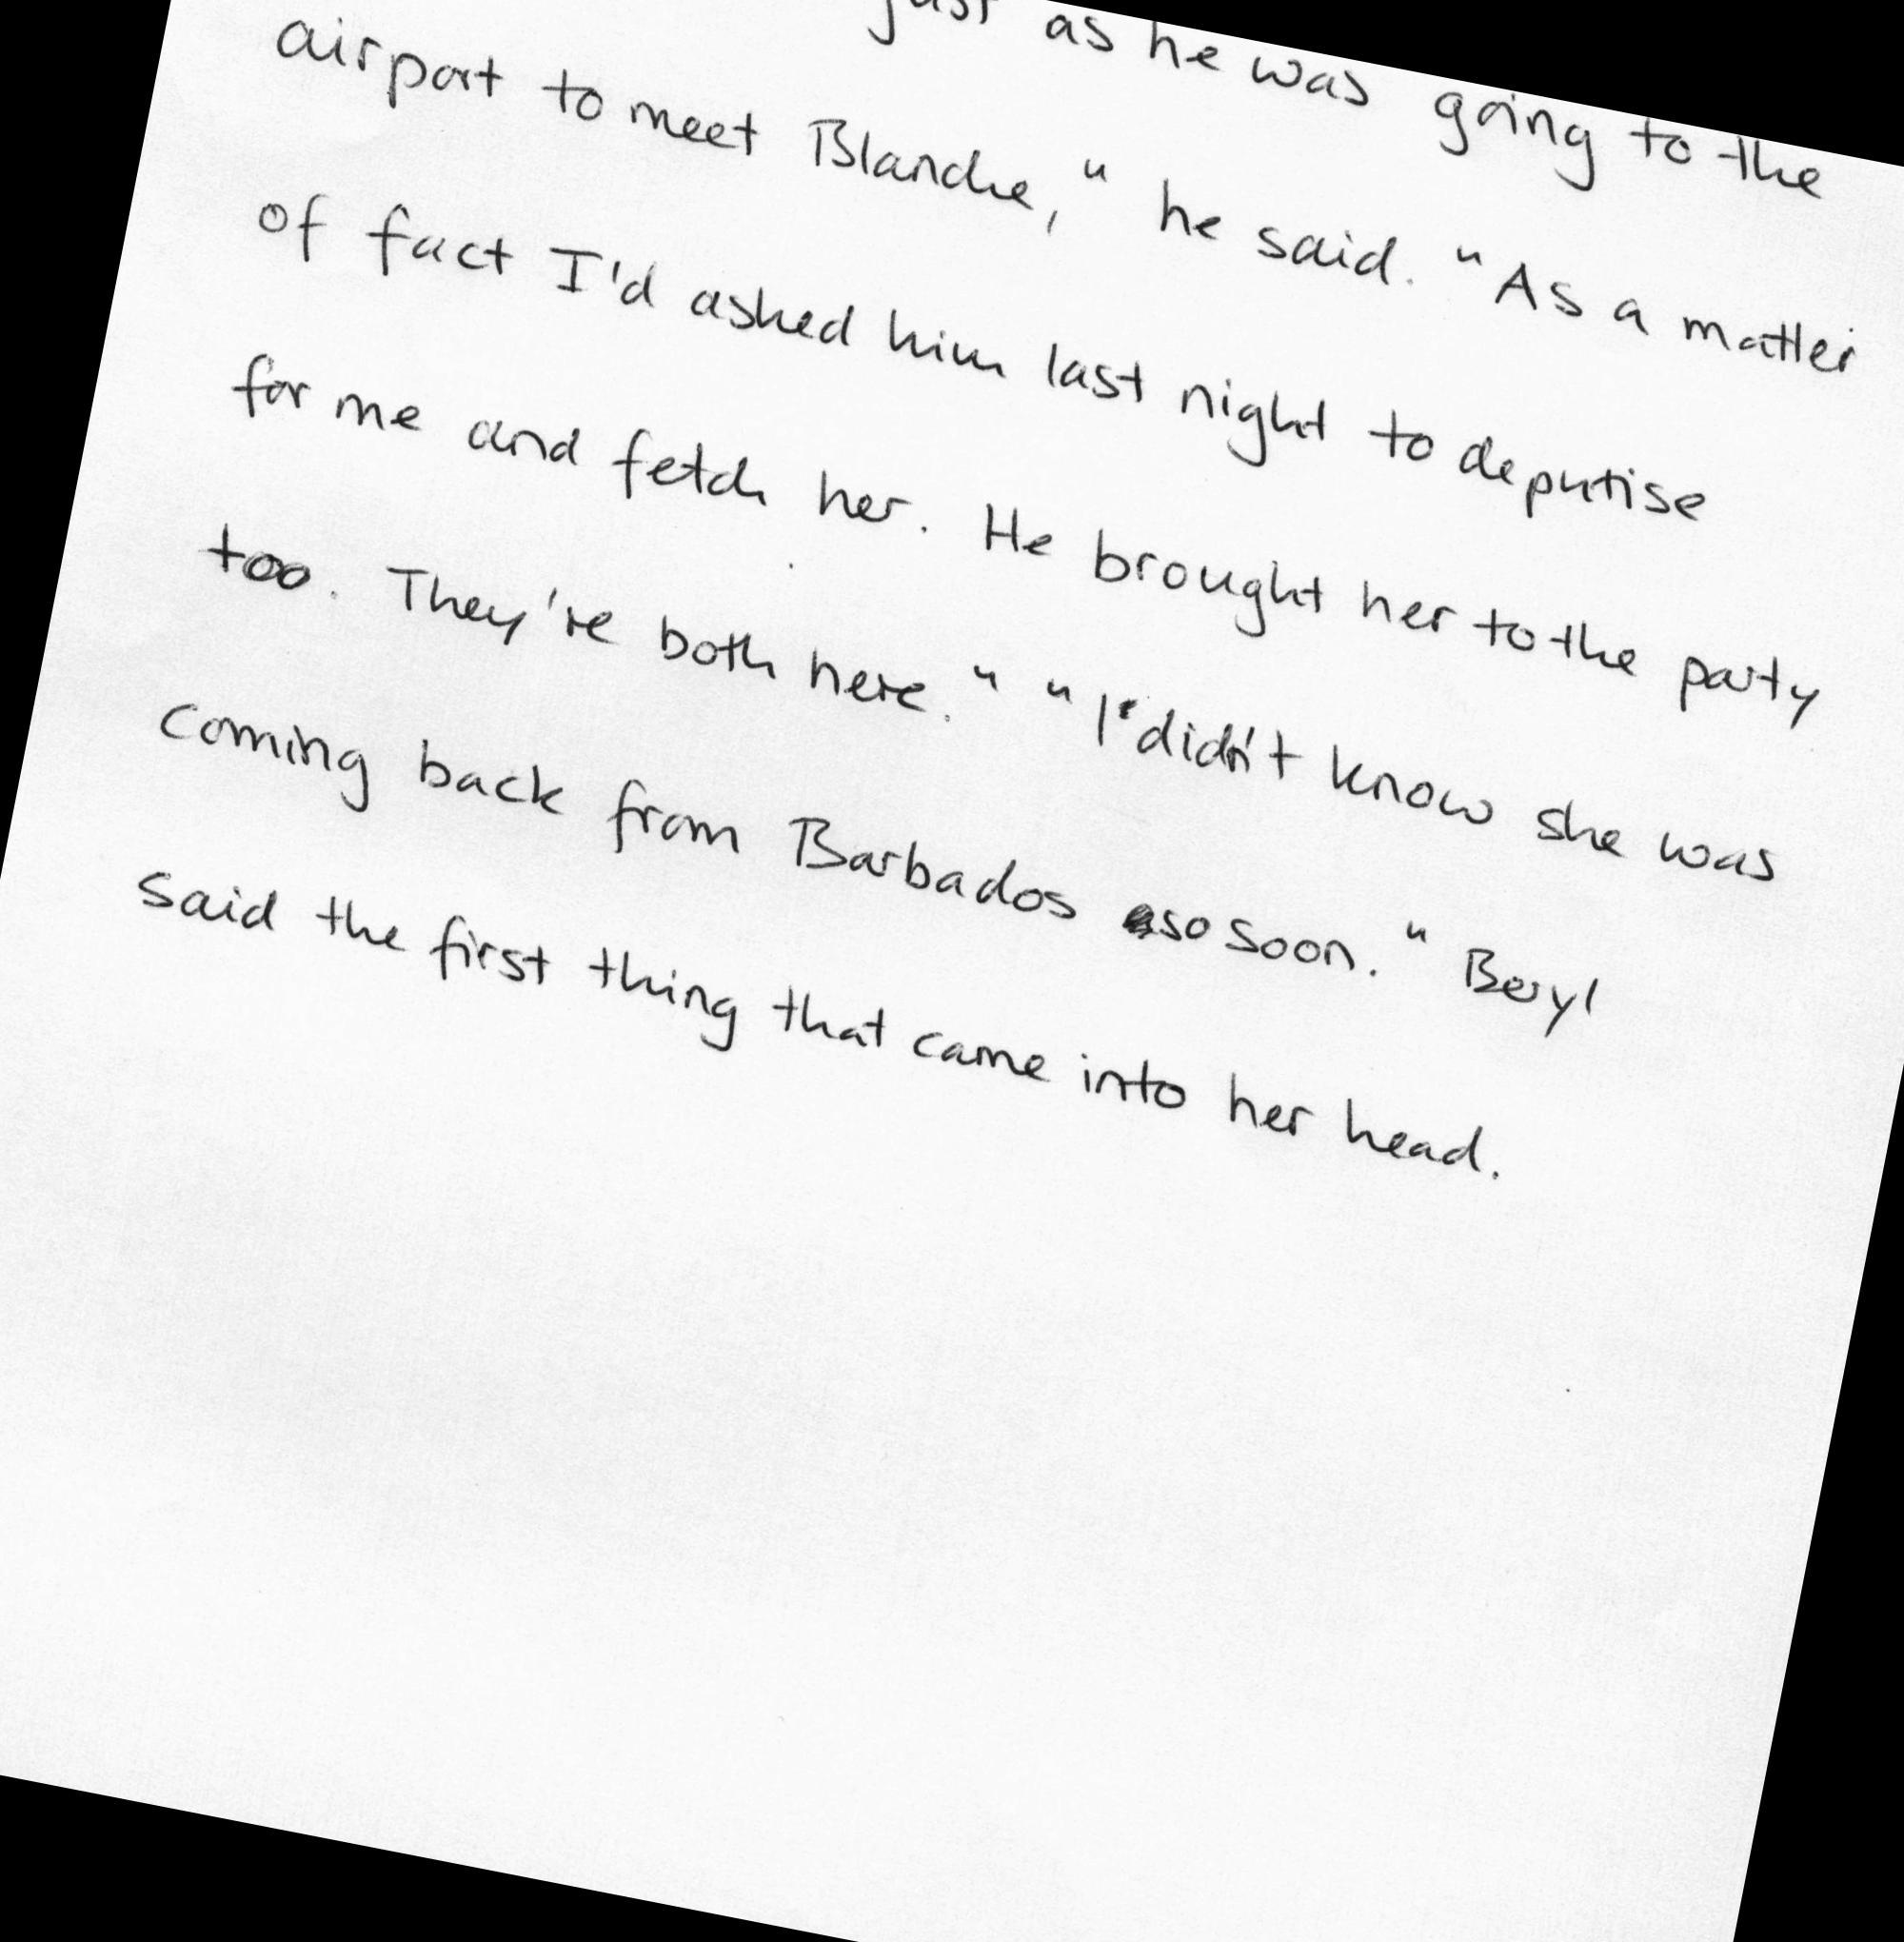 just as he was going to the
airport to meet Blanche," he said. "As a matter
of fact I'd asked him last night to deputise
for me and fetch her. He brought her to the party
too. They're both here." "I didn't know she was
coming back from Barbados so soon." Beryl
said the first thing that came into her head.